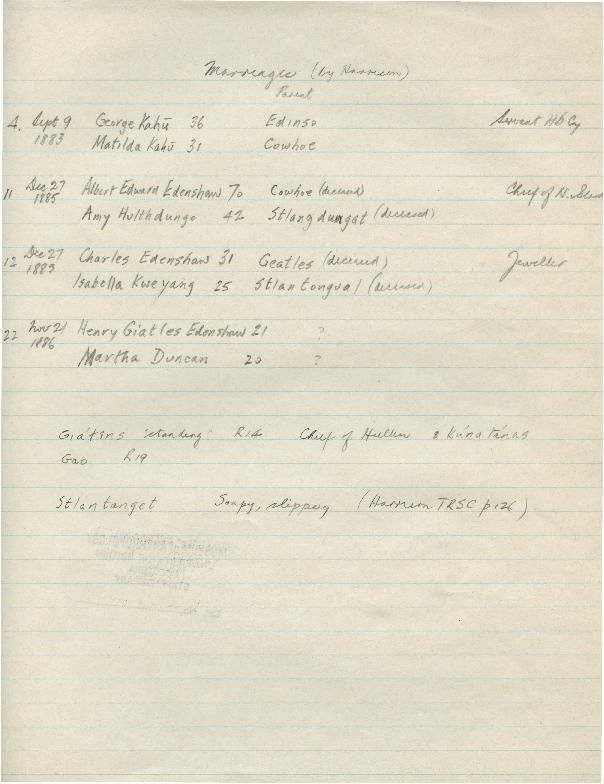 Marriages (by Harrison)
Parent
4. Sept 9 George Kahū 36 Edinso Servant H B Cy
1883 Matilda Kahū 31 Cowhoe
11 Dec 27 Albert Edward Edenshaw 70 Cowhoe (deceased) Chief of N.
1885 Amy Hulthdungo 42 Stlang dungat (deceased)
12 Dec 27 Charles Edenshaw 31 Geatles (deceased) Jeweller
1885 Isabella Kweyang 25 Stlantongual (deceased)
22 Nov 21 Henry Giatles Edenshaw 21 ?
1886 Martha Duncan 20 ?
Giatins "standing" R14 Chief of & Kúna tánas
Gao R19
Stlantanget Soapy, slippery (Harrison TRSC p 126)